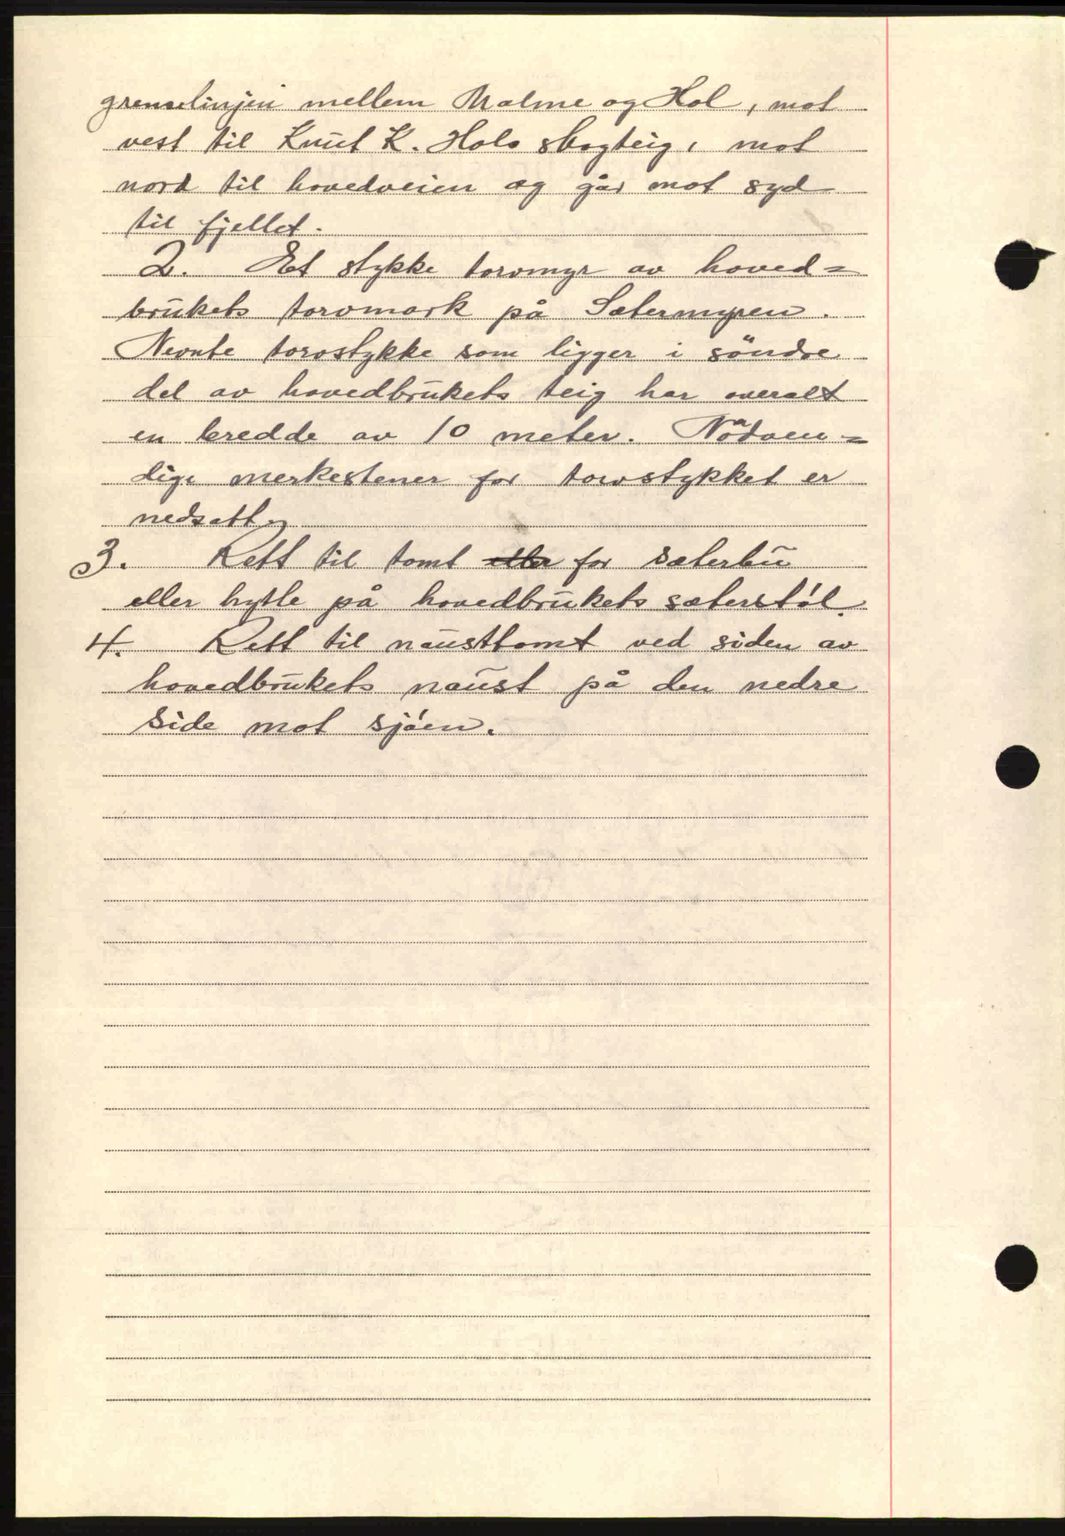 grenselinjen mellem Malme og Hol, mot
vest til Knut K. Hols skogteig, mot
nord til hovedveien og går mot syd
til fjellet.
2. Et stykke torvmyr av hoved=
brukets torvmark på Sætermyren.
Nevnte torvstykke som ligger i söndre
del av hovedbrukets teig har overalt
en bredde av 10 meter. Nödven=
dige merkestener for torvstykket er
nedsatt.
3. Rett til tomt eller for sæterbu
eller hytte på hovedbrukets sæterstöl.
4. Rett til nausttomt ved siden av
hovedbrukets naust på den nedre
side mot sjöen.